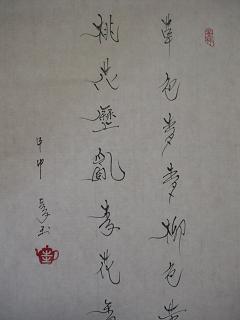 草色青青柳色黄
桃花歷亂李花香
甲申